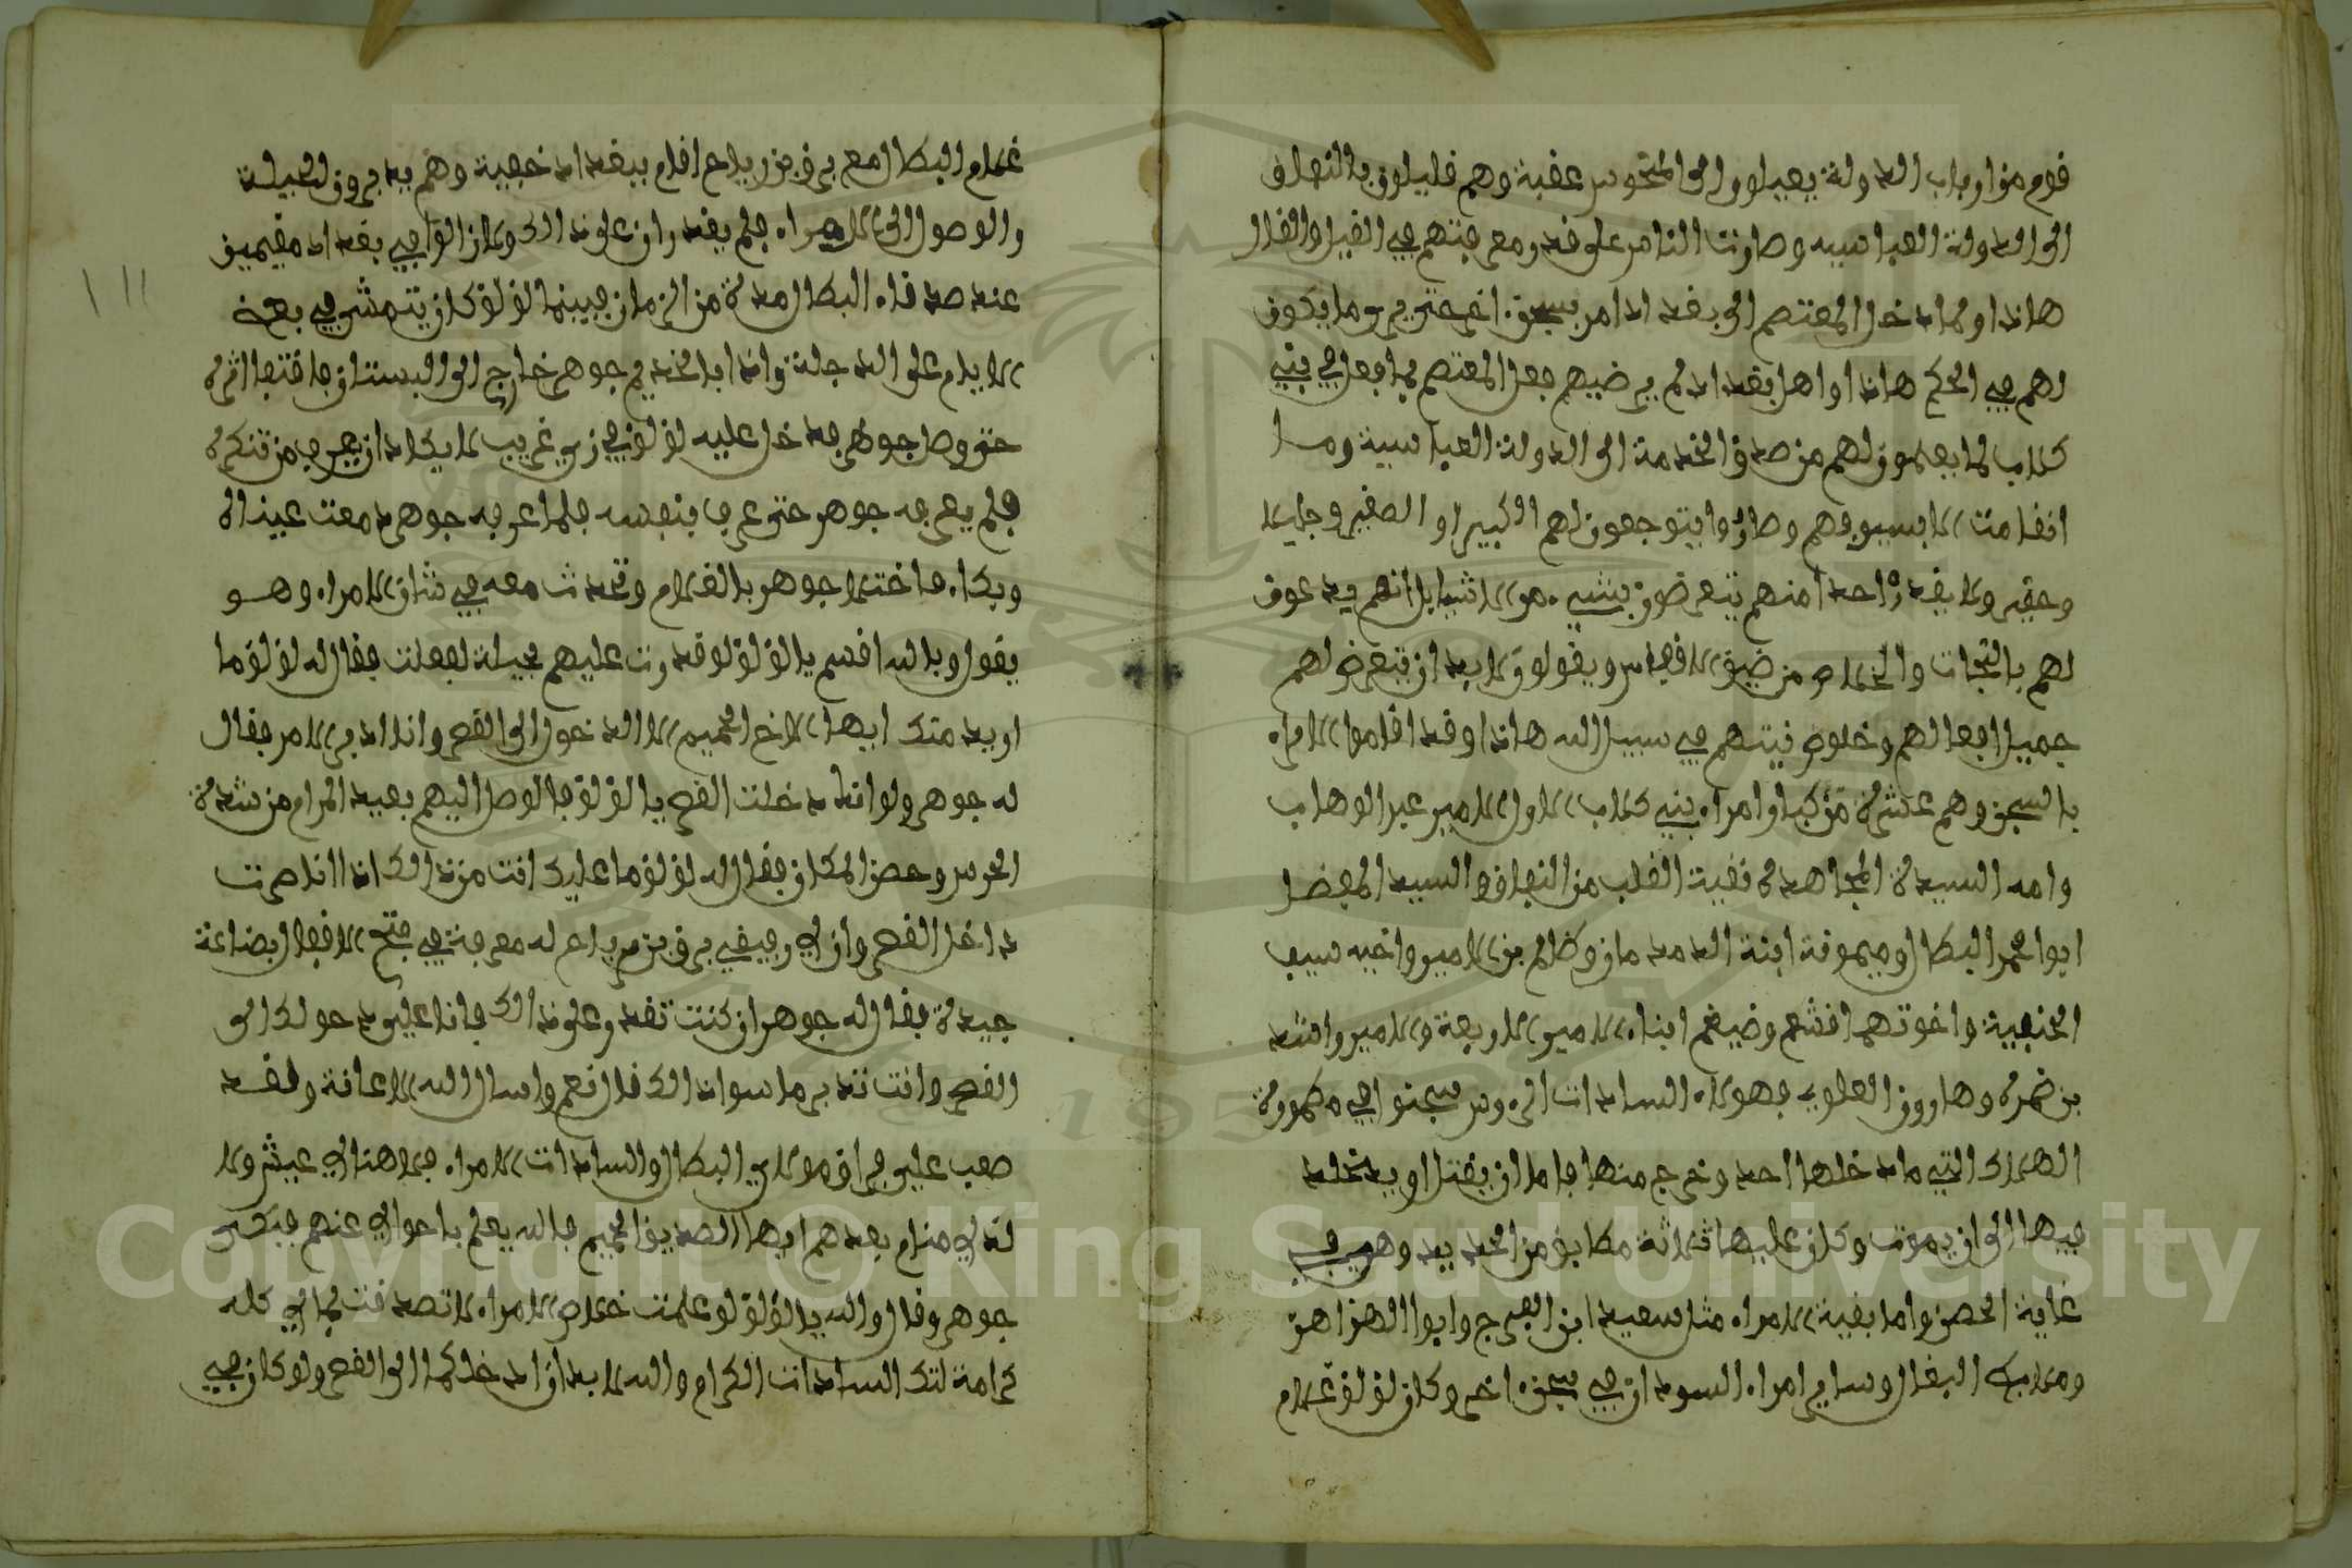 قوم من ارباب الدولة يميلون الى المنحوس عقبة وهم قليلون بالنفاق
الى الدولة العباسيه وصارت الناس على قدر معرفتهم في القيل والقال
هاذا ولما دخل المعتصم الى بغداد امر بسجن اخر حتى يرى ما يكون
لهم في الحكم هاذا واهل بغداد لم يرضيهم فعل المعتصم بما فعل في بني
كلاب لما يعلمون لهم من صدق الخدمة الى الدولة العباسية وما
انقامت الا بسيوفهم وصاروا يتوجعون لهم الكبير او الصغير وجليل
وحقير ولا يقدر احدا منهم يتعرضون بشيء من الاشيا بل انهم يدعون
لهم بالنجات والخلاص من ضيق الاقفاص ويقولون لابد ان تتعرض لهم
جميل افعالهم وخلوص نيتهم في سبيل الله هاذا وقد اقاموا الامراه
بالسجن وهم عشرة مركبا وامراه بني كلاب الاول الامير عبد الوهاب
وامه السيدة المجاهدة نقية القلب من النفاق والسيد المفضل
ابوا محمد البطال وميمونة ابنة الدمدمان وظالم بن الامير واخيه سيف
الحنفية واخوتهم اقشعم وضيغم ابناه الامير الاربعة والامير واشد
بن ضمرة وهارون العلوي فهولاه السادات الروس سجنوا في مطمورة
الهلاك التي ما دخلها احد وخرج منها فاما ان يقتل او يتخلد
فيها الى ان يموت وكان عليها ثلاثة مطابق من الحديد وهي في
غاية الحصن واما بقية الامراه مثل سعيد ابن الفرج وابوا الهزاهز
وملاعب البغال وساير امراه السودان في سجن اخر وكان لؤلؤ غلام
غلام البطال مع يرقن بن رباح اقام ببغداد خفية وهم يدبرون الحيلة
والوصول الى الامراه فلم يقدران على ذالك وكان الواقي بغداد مقيمين
عند صدقاه البطال مدة من الزمان فبينما لؤلؤ كان يتمشى في بعض
الايام على الدجلة واذا بالخديم جوهر خارج الى البستان فاقتفا اثره
حتى وصل جوهر فدخل عليه لؤلؤ في زي غريب لا يكاد ان يعرف من تنكره
فلم يعرفه جوهر حتى عرف بنفسه فلما عرفه جوهر دمعت عيناه
وبكاه فاختلا جوهر بالغلام وتحدث معه في شان الامراه وهو
يقول وبالله اقسم يا لؤلؤ لو قدرت عليهم بحيلة لفعلت فقال له لؤلؤ ما
اريد منك ايها الاخ الحميم الا الدخول الى القصر وانا ادبر الامر فقال
له جوهر ولو انك دخلت القصر يا لؤلؤ فالوصل اليهم بعيد المرام من شدة
الحرس وحصن المكان فقال له لؤلؤ ما عليك انت من ذالك اذا انا صرت
داخل القصر وان لي رفيقي يرقن بن رباح له معرفة في فتح الاقفال بضاعة
جيدة فقال له جوهر ان كنت تقدر على ذالك فانا علي دخولك الى
القصر وانت تدبر ما سوا ذالك قال نعم واسال الله الاعانة ولقد
صعب علي فراق مولاي البطال والسادات الامراه فلا هنالي عيش ولا
لذلي منام بعدهم ايها الصديق الحميم فالله يعلم باحوالي عنهم فبكى
جوهر وقال والله يا لؤلؤ لو علمت خلاص الامراه لا تصدقت بمالي كله
كرامة لتلك السادات الكرام والله لابد ان ادخلكما الى القصر ولو كان في
١١١
Copyright © King Saud University
1957